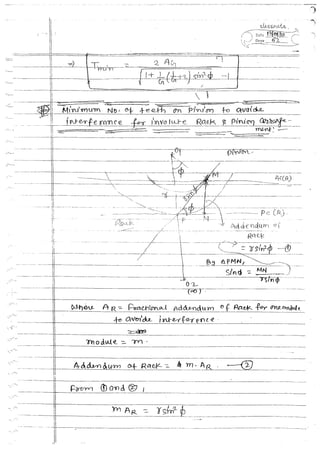 Date
Page 52
⇒ Tmin = 2 AG
√1 + 1/G (1/G + 2) sin²φ - 1
Minimum No. of teeth on Pinion to avoide
interference for involute Rack & Pinion
ment:-
O1
Pinion
φ
M
r
r sinφ
φ
P
N
PC (R)
Rack
Addendum of
Rack
= r sin²φ —①
By ΔPMN,
sinφ = MN
r sinφ
O2
(∞)
Where AR = Fractional Addendum of Rack for one module
to avoide interference
module = m.
Addendum of Rack = m. AR —②
From ① and ②,
m AR = r sin²φ